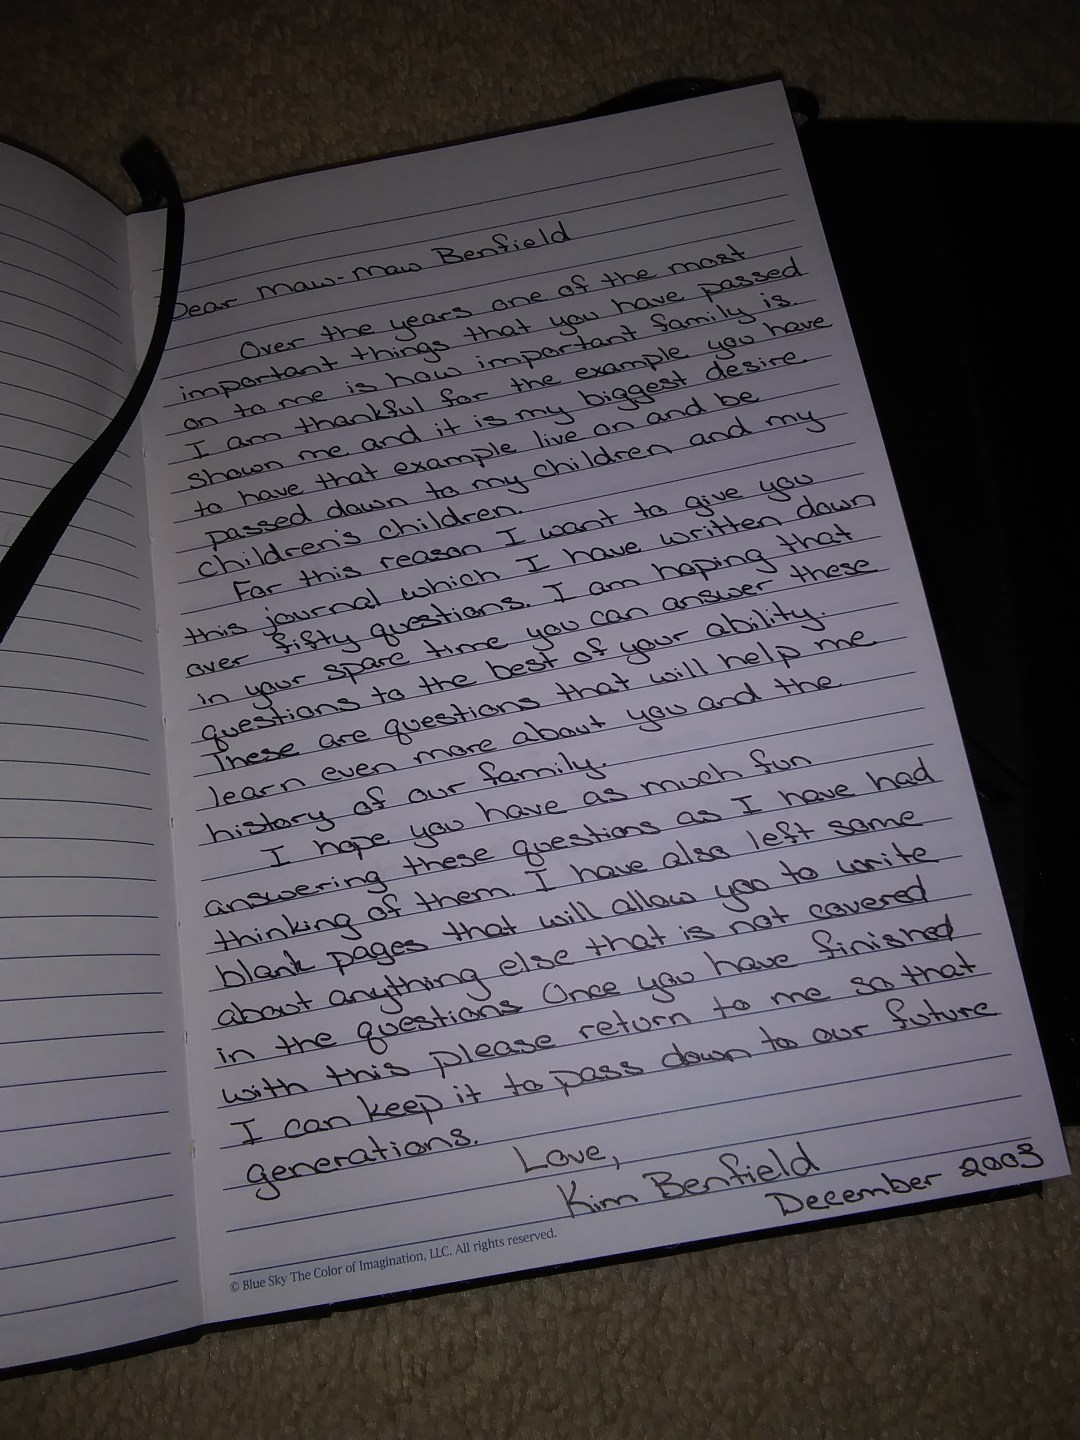 Dear Maw-Maw Benfield
Over the years one of the most
important things that you have passed
on to me is how important family is.
I am thankful for the example you have
shown me and it is my biggest desire
to have that example live on and be
passed down to my children and my
children's children.
For this reason I want to give you
this journal which I have written down
over fifty questions. I am hoping that
in your spare time you can answer these
questions to the best of your ability.
These are questions that will help me
learn even more about you and the
history of our family.
I hope you have as much fun
answering these questions as I have had
thinking of them. I have also left some
blank pages that will allow you to write
about anything else that is not covered
in the questions Once you have finished
with this please return to me so that
I can keep it to pass down to our future
generations.
Love,
Kim Benfield
December 2003
© Blue Sky The Color of Imagination, LLC. All rights reserved.